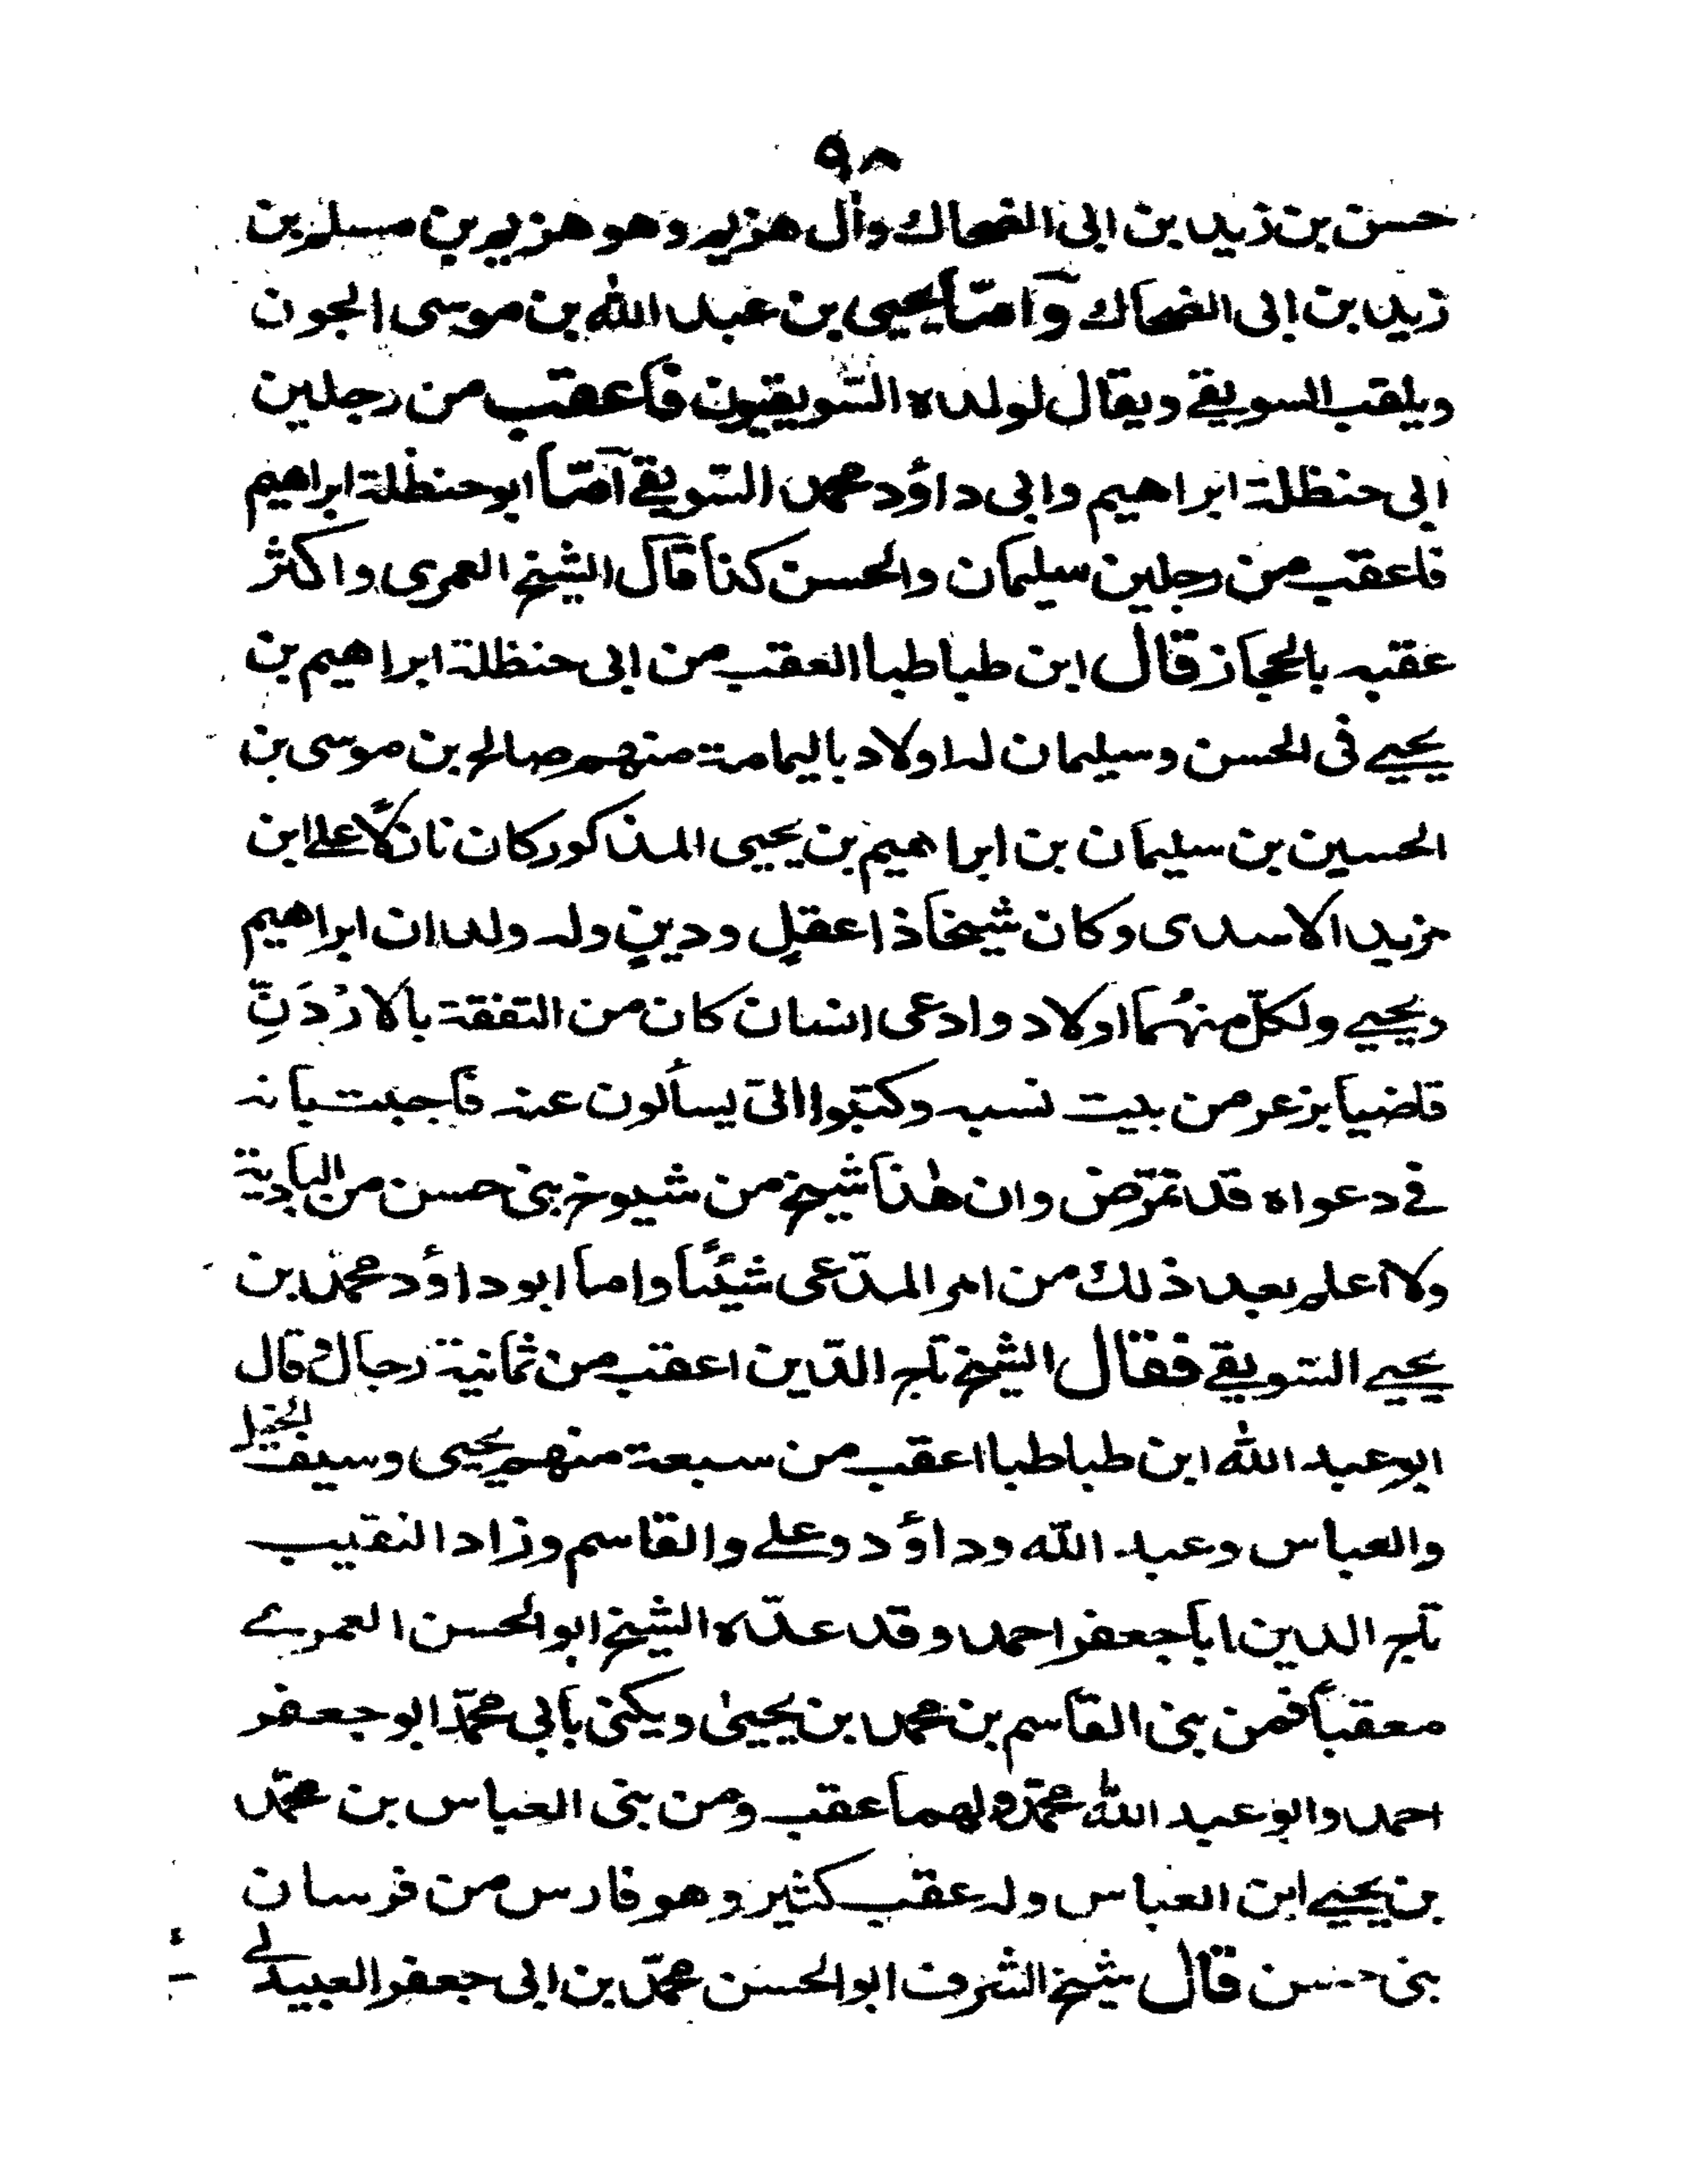 ٩٨
حسن بن زيد بن ابى الضحاك وآل هزيم وهو هزيم بن مسلم بن
زيد بن ابى الضحاك وآمّا يحيى بن عبد الله بن موسى الجون
ويلقب السويقے ويقال لولده السّويقيون فاعقب من رجلين
ابى حنظلة ابراهيم وابى داؤد محمد السّويقے آمّا ابو حنظلة ابراهيم
فاعقب من رجلين سليمان والحسن كذا قال الشيخ العمرى واكثر
عقبه بالحجاز قال ابن طباطبا العقب من ابى حنظلة ابراهيم بن
يحيے فى الحسن وسليمان له اولاد باليمامة منهم صالح بن موسى بن
الحسين بن سليمان بن ابراهيم بن يحيى المذكور كان نازلًا علے ابن
مزيد الاسدى وكان شيخا ذا عقلٍ ودينٍ وله ولدان ابراهيم
ويحيے ولكلّ منهُما اولاد وادعى انسان كان من التفقة بالارْدَنِّ
قاضيا بزعر من بيت نسبه وكتبوا الىّ يسألون عنه فاجبت بانه
فے دعواه قد تمرّض وان هٰذا شيخ من شيوخ بنى حسن من البادية
ولا اعلم بعد ذلك من امر المدّعى شيئًا واما ابو داؤد محمد بن
يحيے السّويقے فقال الشيخ تاج الدّين اعقب من ثمانية رجال وقال
ابو عبد الله ابن طباطبا اعقب من سبعة منهم يحيى وسيف
والعباس وعبد الله وداؤد وعلے والقاسم وزاد النقيب
تاج الدين ابا جعفر احمد وقد عدّه الشيخ ابو الحسن العمرے
معقباً فمن بنى القاسم بن محمد بن يحيىٰ ويكنى بابي محمّد ابو جعفر
احمد وابو عبد الله محمّد ولهما عقب ومن بنى العباس بن محمّد
بن يحيے ابن العباس وله عقب كثير وهو فارس من فرسان
بنى حسن قال شيخ الشرف ابو الحسن محمّد بن ابى جعفر العبيدلے